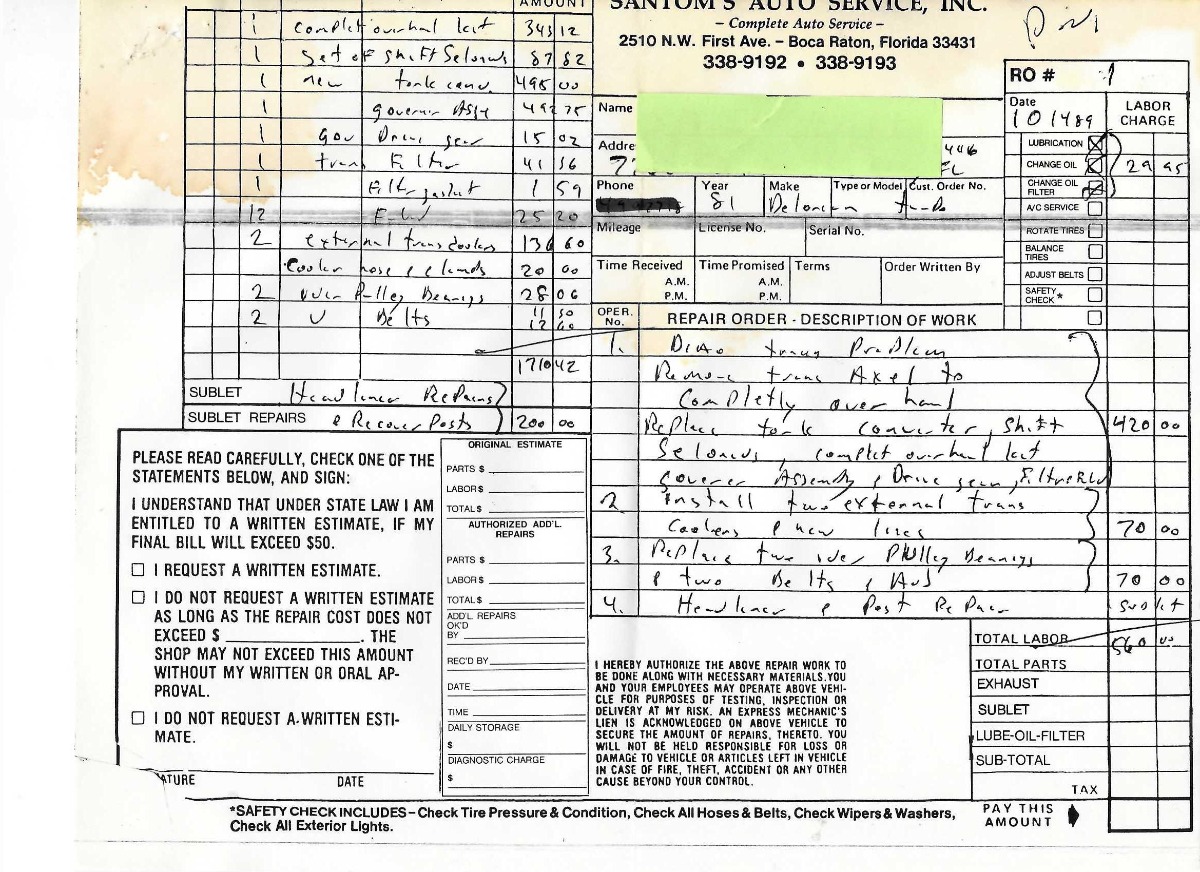 AMOUNT
1 complet overhal kit 343 12
1 Set of shift Selonods 87 82
1 new tork conv. 495 00
1 governor ASSY 492 75
1 Gov Drive gear 15 02
1 trans Filter 41 36
1 Filter gasket 1 59
12 25 20
2 external trans coolers 136 60
Cooler hose & clamds 20 00
2 Pulley Bearings 28 06
2 V Belts 11 50
1710 42
SUBLET Headliner Repairs
SUBLET REPAIRS & Recover Posts 200 00
PLEASE READ CAREFULLY, CHECK ONE OF THE
STATEMENTS BELOW, AND SIGN:
I UNDERSTAND THAT UNDER STATE LAW I AM
ENTITLED TO A WRITTEN ESTIMATE, IF MY
FINAL BILL WILL EXCEED $50.
I REQUEST A WRITTEN ESTIMATE.
I DO NOT REQUEST A WRITTEN ESTIMATE
AS LONG AS THE REPAIR COST DOES NOT
EXCEED $ ____________. THE
SHOP MAY NOT EXCEED THIS AMOUNT
WITHOUT MY WRITTEN OR ORAL AP-
PROVAL.
I DO NOT REQUEST A WRITTEN ESTI-
MATE.
ATURE DATE
ORIGINAL ESTIMATE
PARTS $
LABOR $
TOTAL $
AUTHORIZED ADD'L.
REPAIRS
PARTS $
LABOR $
TOTAL $
ADD'L. REPAIRS
OK'D
BY
REC'D BY
DATE
TIME
DAILY STORAGE
$
DIAGNOSTIC CHARGE
$
SANTOM'S AUTO SERVICE, INC.
– Complete Auto Service –
2510 N.W. First Ave. – Boca Raton, Florida 33431
338-9192 • 338-9193
RO # 1
Date
10 14 89
LABOR
CHARGE
LUBRICATION
CHANGE OIL 29 95
CHANGE OIL
FILTER
A/C SERVICE
ROTATE TIRES
BALANCE
TIRES
ADJUST BELTS
SAFETY
CHECK *
Name
Addre 446
FL
Phone Year Make Type or Model Cust. Order No.
81 Delorean
Mileage License No. Serial No.
Time Received Time Promised Terms Order Written By
A.M. A.M.
P.M. P.M.
OPER.
No. REPAIR ORDER - DESCRIPTION OF WORK
1. trans Problem
Remove trans Axel to
Completly over haul
Replace tork converter, shift 420 00
Selonods, complet overhal kit
Assembly & Drive gear,
2 Install two external trans
Coolers & new lines 70 00
3. Replace two Pulley Bearings
& two Belts & 70 00
4. Headliner & Post Repair sublet
TOTAL LABOR 560 00
TOTAL PARTS
EXHAUST
SUBLET
LUBE-OIL-FILTER
SUB-TOTAL
TAX
PAY THIS
AMOUNT
I HEREBY AUTHORIZE THE ABOVE REPAIR WORK TO
BE DONE ALONG WITH NECESSARY MATERIALS. YOU
AND YOUR EMPLOYEES MAY OPERATE ABOVE VEHI-
CLE FOR PURPOSES OF TESTING, INSPECTION OR
DELIVERY AT MY RISK. AN EXPRESS MECHANIC'S
LIEN IS ACKNOWLEDGED ON ABOVE VEHICLE TO
SECURE THE AMOUNT OF REPAIRS, THERETO. YOU
WILL NOT BE HELD RESPONSIBLE FOR LOSS OR
DAMAGE TO VEHICLE OR ARTICLES LEFT IN VEHICLE
IN CASE OF FIRE, THEFT, ACCIDENT OR ANY OTHER
CAUSE BEYOND YOUR CONTROL.
*SAFETY CHECK INCLUDES – Check Tire Pressure & Condition, Check All Hoses & Belts, Check Wipers & Washers,
Check All Exterior Lights.